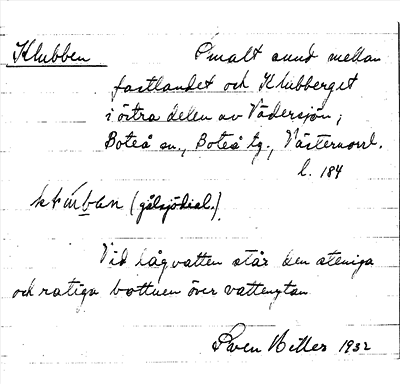 Klubben Smalt sund mellan
fastlandet och Klubberget
i östra delen av Vådersjön,
Boteå sn., Boteå tg., Västernorrl.
l. 184
(gålsjödial.).
Vid lågvatten står den steniga
och ratiga bottnen över vattenytan
Sven Biller 1932